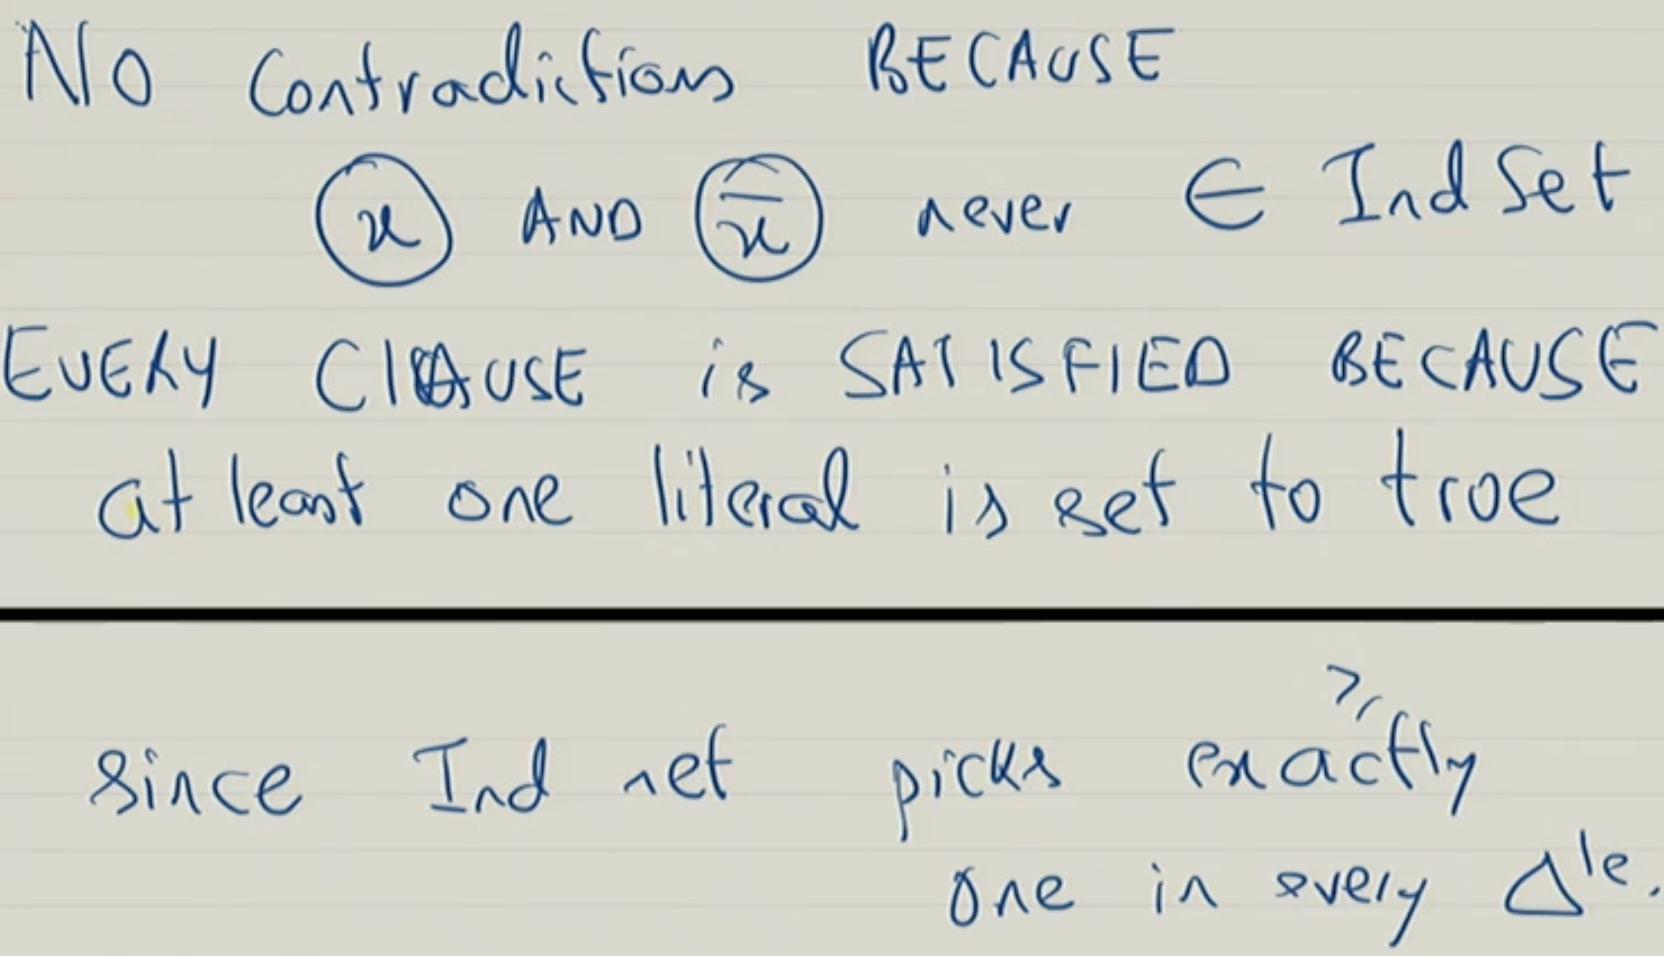 No Contradictions BECAUSE
x AND x̅ never ∈ Ind Set
EVERY ClAUSE is SATISFIED BECAUSE
at least one literal is set to true
≥
since Ind set picks exactly
one in every Δle.